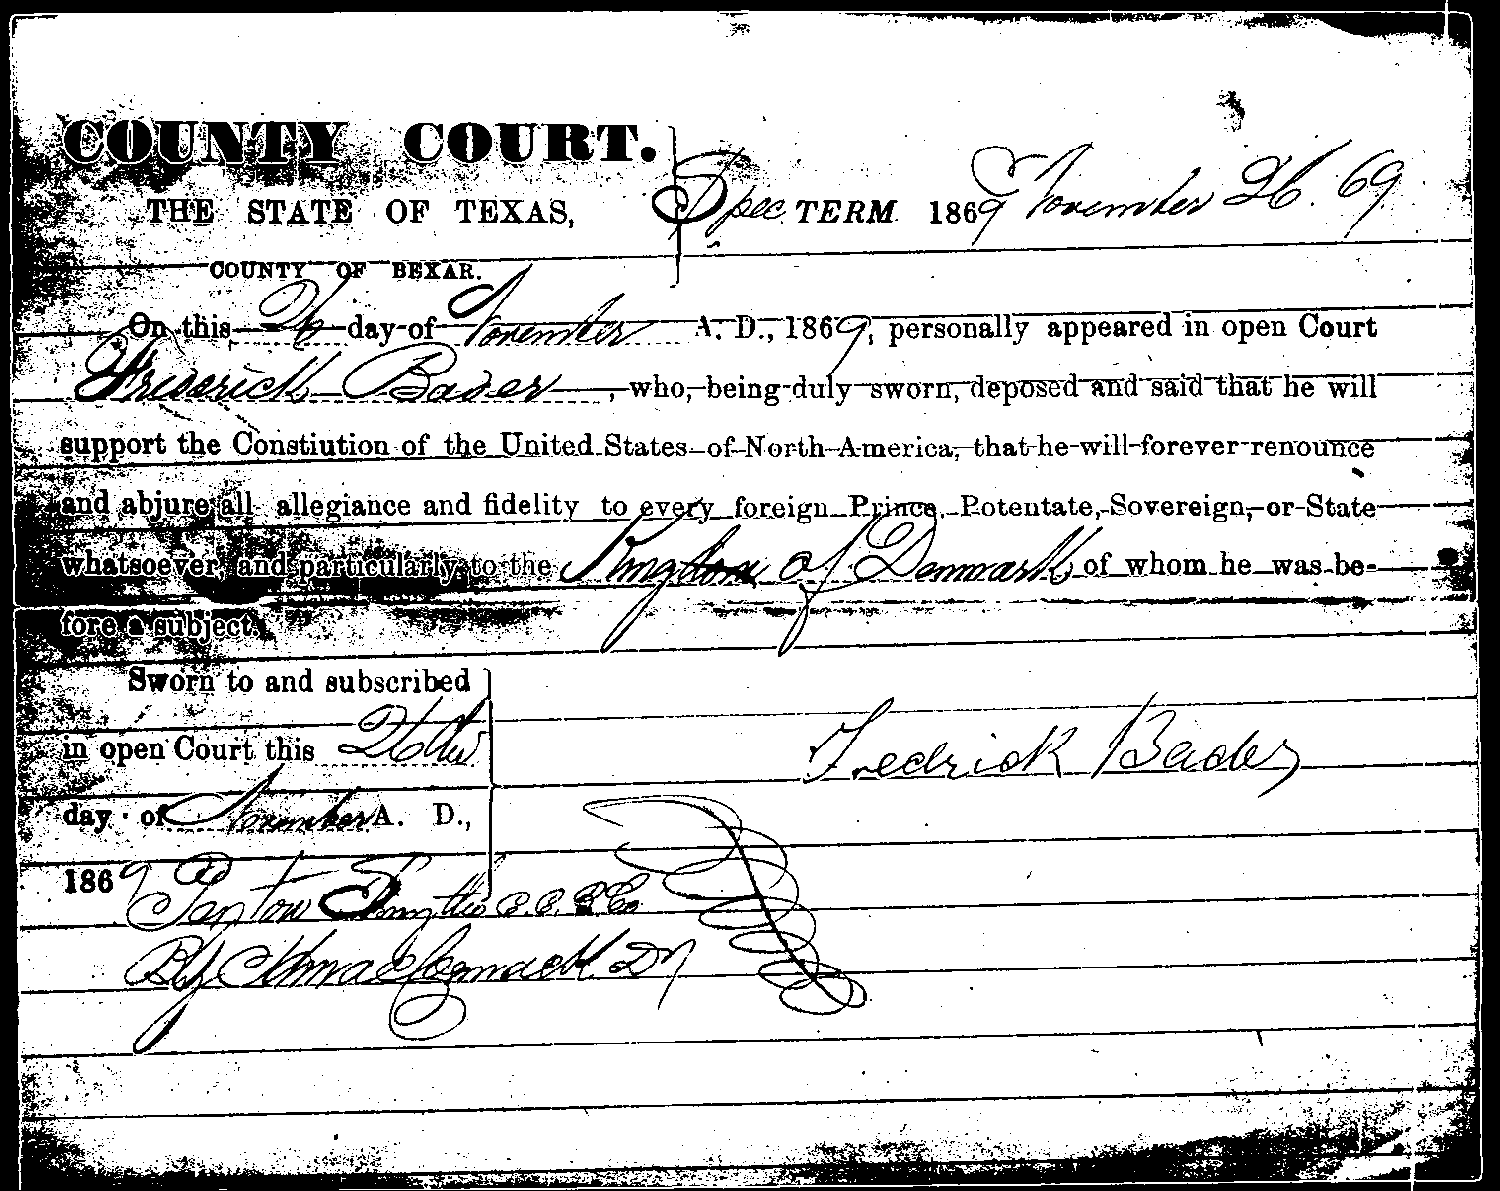 COUNTY COURT.
THE STATE OF TEXAS, Spec TERM 1869 November 26. 69
COUNTY OF BEXAR.
On this 26 day of November A. D., 1869, personally appeared in open Court
Frederick Bader, who, being duly sworn, deposed and said that he will
support the Constiution of the United States of North America, that he will forever renounce
and abjure all allegiance and fidelity to every foreign Prince, Potentate, Sovereign, or State
whatsoever, and particularly to the Kingdom of Denmark of whom he was be-
fore a subject.
Sworn to and subscribed
in open Court this 26th
Fredrick Bader
day of November A. D.,
1869
By